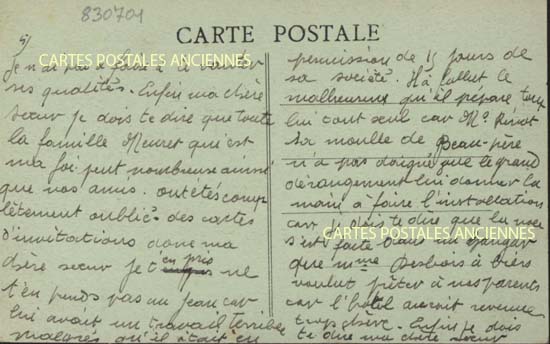 830704
5)
CARTE POSTALE
CARTES POSTALES ANCIENNES
je n'ai pas à te vanter
ses qualités. Enfin ma chère
sœur je dois te dire que toute
la famille Meuret qu'est
ma foi peut nombreuse ainsi
que nos amis. ont étés comp
lètement oublié des cartes
d'invitations donc ma
chère sœur je t'en pris ne
t'en prends pas au jean car
lui avait un travail terrible
malgrès qu'il était en
permission de 15 jours de
sa société. Il a fallut le
malheureux qu'il prépare tout
lui tout seul car Mr
sa moulle de Beau-père
n'a pas daigné que le grand
dérangement lui donner la
main a faire l'installation
car je dois te dire que la noce
s'est faite dans un hangar
CARTES POSTALES ANCIENNES
que mme Desbois à
voulut prêter à mes parents
car l'hôtel aurait revenue
trop chère. Enfin je dois
te dire ma chère sœur